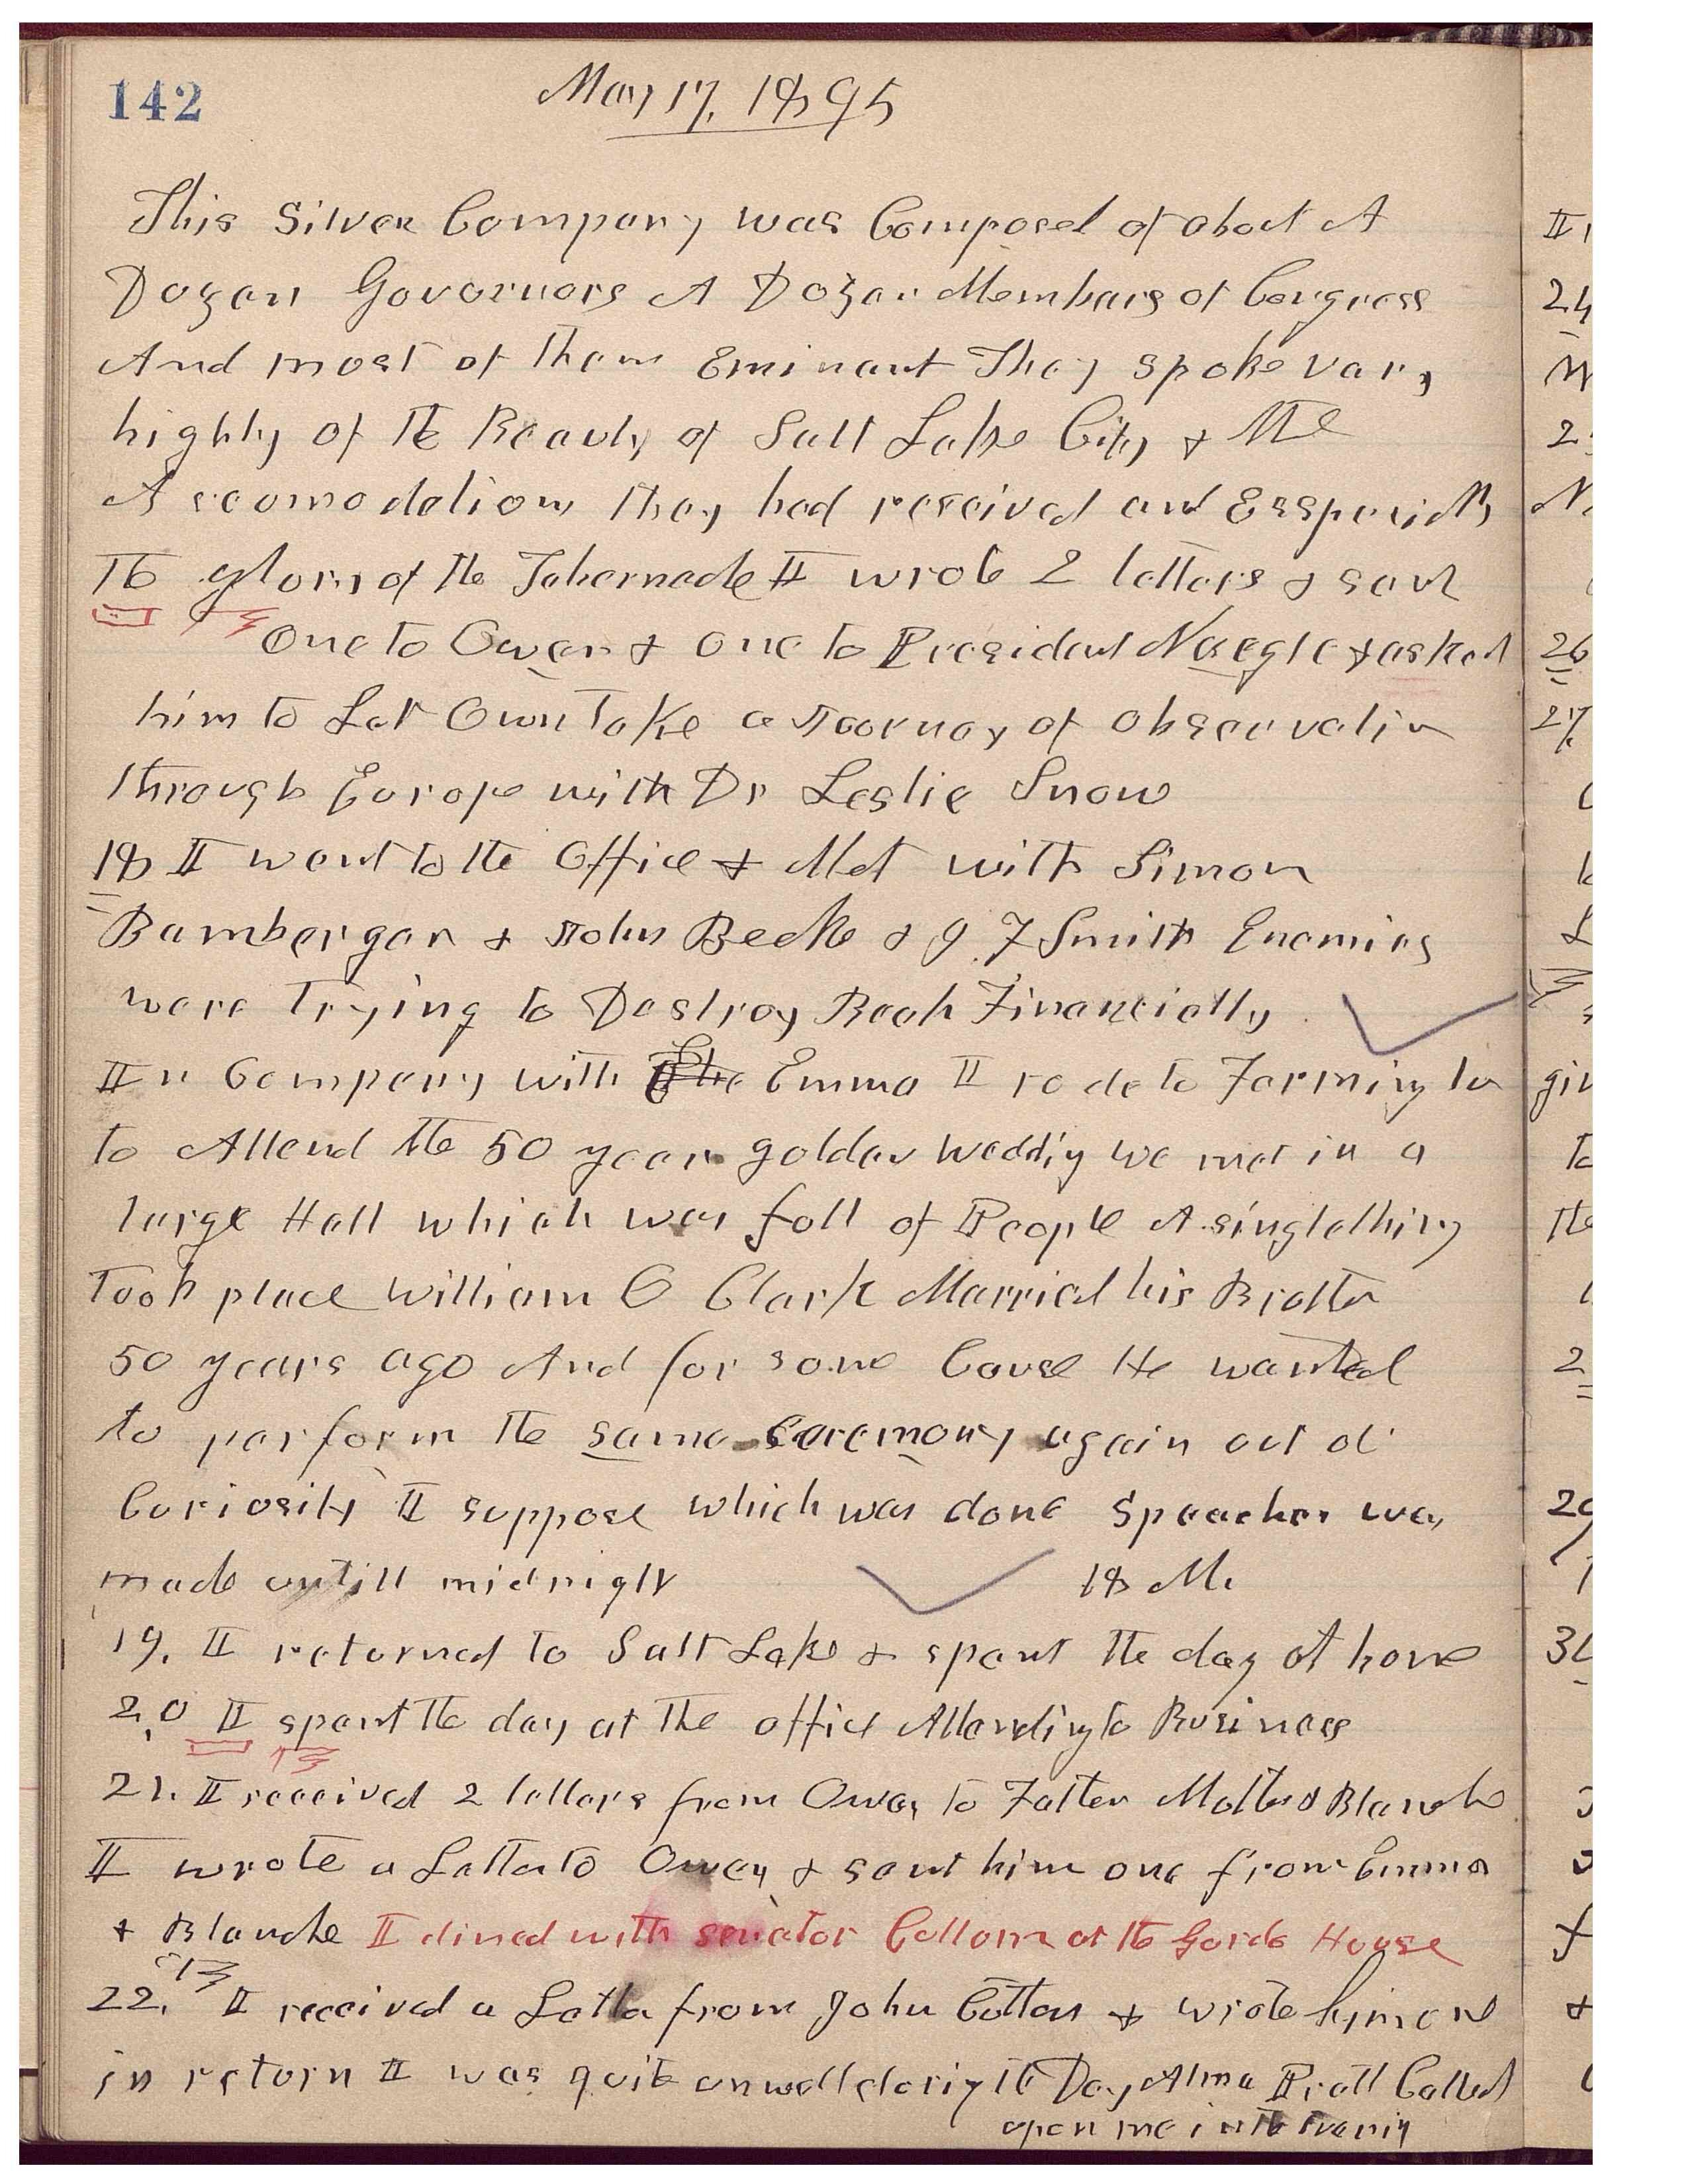 142
May 17, 1895
This Silver Company was Composed of about A
Dozen Governors A Dozen Members of Congress
And most of them Eminant They spoke very
highly of the Beauty of Salt Lake City & the
Accomodation they had received and Esspecially
the glory of the Tabernacle I wrote 2 letters & sent
One to Owen & one to President Naegle & asked
him to Let Owen Take a Journey of observation
through Europe with Dr Leslie Snow
18 I went to the Office & Met with Simon
Bamberger & John Beck & J F Smith Enemies
were Trying to Destroy Beck Financially
In Company with Emma I rode to Farmington
to Attend the 50 year golden wedding we met in a
large Hall which was full of People A singlething
Took place William O Clark Married his Brother
50 years ago And for some Cause He wanted
to perform the same ceremony again out of
Curiosity I suppose which was done Speeches was
made untill midnight 18 M.
19. I returned to Salt Lake & spent the day at home
20 I spent the day at the office Attending to Business
21. I received 2 letters from Owen to Father Mother & Blanche
I wrote a Letter to Owen & sent him one from Emma
& Blanche I dined with senator Cullom at the Gardo House
22. I received a Letter from John Cotton & wrote him one
in return I was quite unwell during the Day Alma Pratt Called
upon me in the Evening